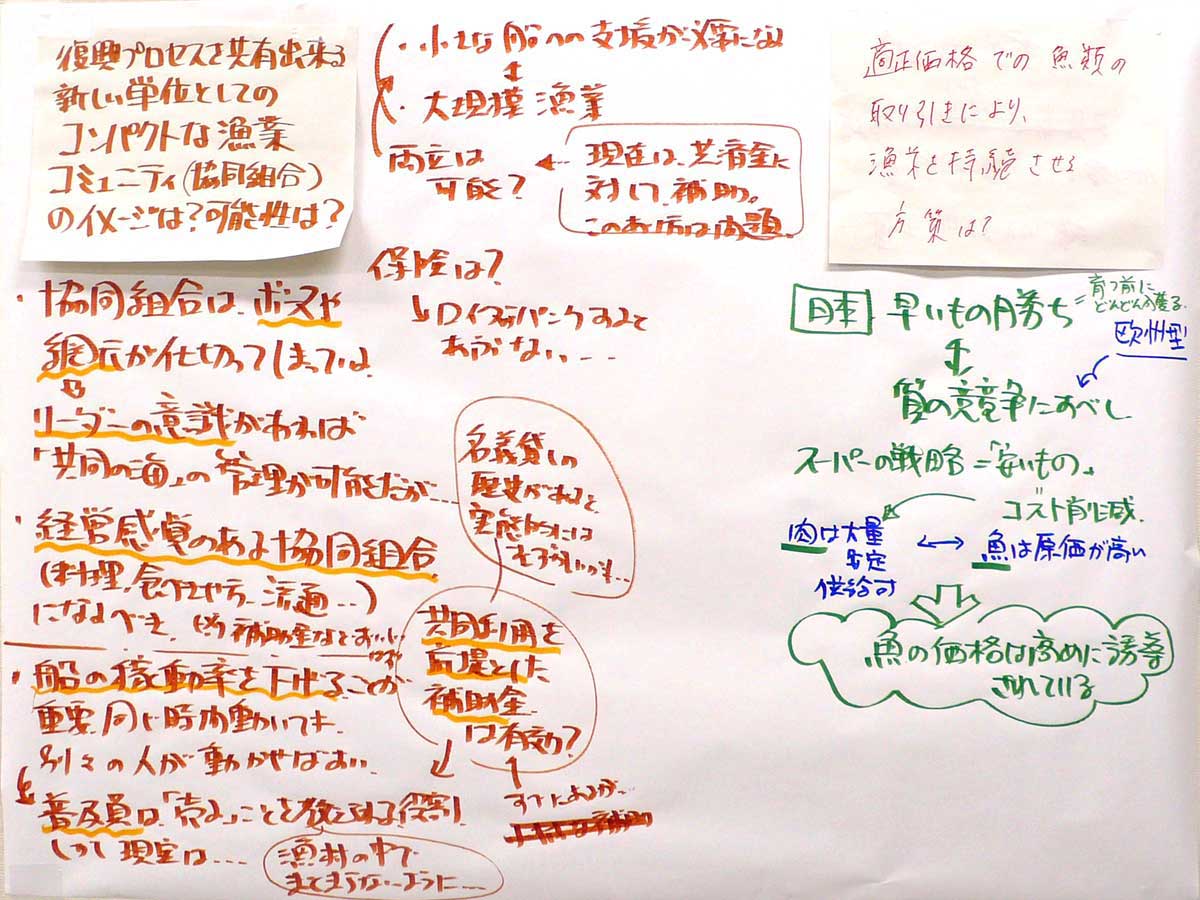 復興プロセスを共有出来る
新しい単位としての
コンパクトな漁業
コミュニティ(協同組合)
のイメージは?可能性は?
・小さな船への支援が必要になる
↕
・大規模漁業
両立は
可能?
現在は、共済金に
対して補助。
このあり方は問題。
保険は?
あぶない…
適正価格での魚類の
取り引きにより、
漁業を持続させる
方策は?
・協同組合は、ボスや
網元が仕切ってしまっている
リーダーの意識があれば
「共同の海」の管理が可能だが…
名義貸しの
歴史があると
実態的には
・経営感覚のある協同組合
(料理、食べ方、流通…)
になるべき。
・船の稼動率を下げることが
重要。同じ時間動いても
別々の人が動かせばよい。
共同利用を
前提とした
補助金
は有効?
すでにあるが…
普及員は「売る」ことを教えられる役割。
しかし現実は…
漁村の中で
日本 早いもの勝ち
=育つ前に
どんどん獲る
欧州型
↕
質の競争にすべし
スーパーの戦略=「安いもの」
コスト削減
肉は大量
安定
供給可
↔ 魚は原価が高い
魚の価格は高めに誘導
されている